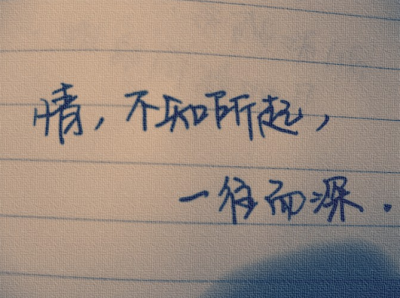 情，不知所起，
一往而深.